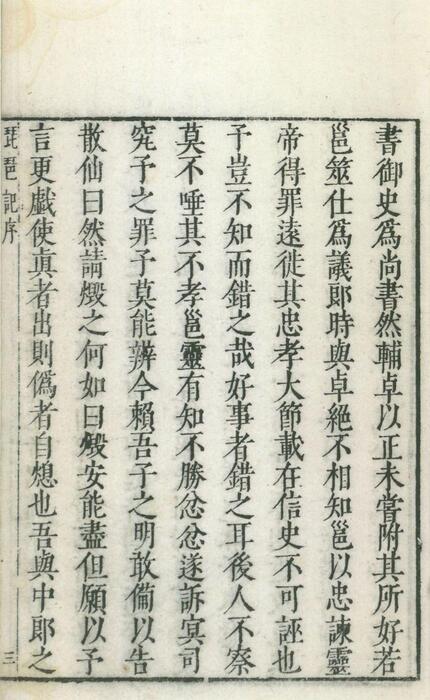 書御史爲尚書然輔卓以正未嘗附其所好若
邕筮仕爲議郎時與卓絕不相知邕以忠諫靈
帝得罪遠徙其忠孝大節載在信史不可誣也
予豈不知而錯之哉好事者錯之耳後人不察
莫不唾其不孝邕靈有知不勝忿忿遂訴冥司
究予之罪予莫能辨今賴吾子之明敢備以告
散仙曰然請燬之何如曰燬安能盡但願以予
言更戲使眞者出則僞者自熄也吾與中郎之
琵琶記序
三